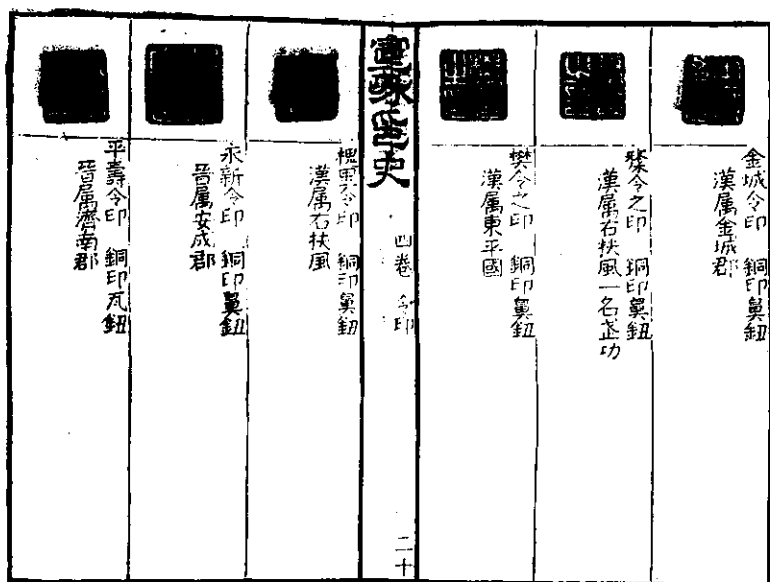 金城令印 銅印鼻鈕
漢属金城郡
令之印 銅印鼻鈕
漢属右扶風一名武功
樊令之印 銅印鼻鈕
漢属東平國
宣龢印史
四卷 令印
二十
槐里令印 銅印鼻鈕
漢属右扶風
永新令印 銅印鼻鈕
晉属安成郡
平壽令印 銅印瓦鈕
晉属濟南郡